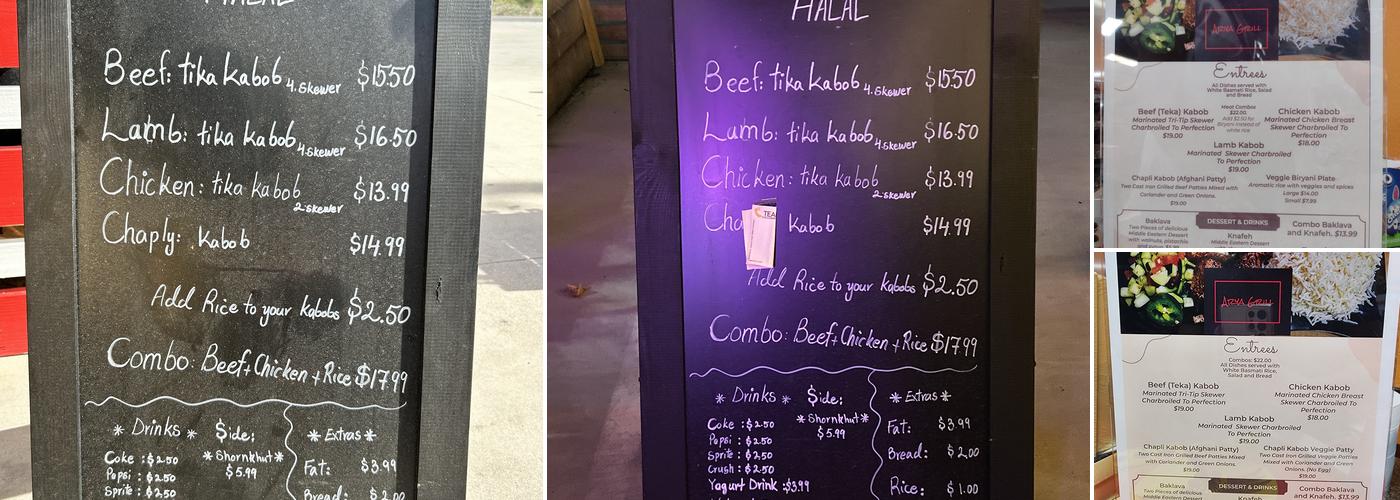 HALAL
Beef: tika kabob 4.skewer $15.50
Lamb: tika kabob 4.skewer $16.50
Chicken: tika kabob 2-skewer $13.99
Chaply: kabob $14.99
Add Rice to your kabobs $2.50
Combo: Beef+Chicken+Rice $17.99
* Drinks *
Coke : $2.50
Popsi : $2.50
Sprite : $2.50
Side:
*Shornkhut*
$5.99
* Extras *
Fat: $3.99
Bread: $2.00
HALAL
Beef: tika kabob 4.skewer $15.50
Lamb: tika kabob 4.skewer $16.50
Chicken: tika kabob 2-skewer $13.99
Cha
TEA
kabob $14.99
Add Rice to your kabobs $2.50
Combo: Beef+Chicken+Rice $17.99
* Drinks *
Coke : $2.50
Popsi : $2.50
Sprite : $2.50
Crush : $2.50
Yogurt Drink : $3.99
Side:
*Shornkhut*
$5.99
* Extras *
Fat: $3.99
Bread: $2.00
Rice: $1.00
Arya Grill
Entrees
All Dishes served with
White Basmati Rice, Salad
and Bread
Beef (Teka) Kabob
Marinated Tri-Tip Skewer
Charbroiled To Perfection
$19.00
Meat Combos
$22.00
Add $2.50 for
Biryani instead of
white rice
Chicken Kabob
Marinated Chicken Breast
Skewer Charbroiled To
Perfection
$18.00
Lamb Kabob
Marinated Skewer Charbroiled
To Perfection
$19.00
Chapli Kabob (Afghani Patty)
Two Cast Iron Grilled Beef Patties Mixed with
Coriander and Green Onions.
$19.00
Veggie Biryani Plate
Aromatic rice with veggies and spices
Large $14.00
Small $7.99
DESSERT & DRINKS
Baklava
Two Pieces of delicious
Middle Eastern Dessert
with walnuts, pistachio
Knafeh
Middle Eastern Dessert
Combo Baklava
and Knafeh. $13.99
Arya Grill
Entrees
Combos: $22.00
All Dishes served with
White Basmati Rice,
Salad and Bread
Beef (Teka) Kabob
Marinated Tri-Tip Skewer
Charbroiled To Perfection
$19.00
Chicken Kabob
Marinated Chicken Breast
Skewer Charbroiled To
Perfection
$18.00
Lamb Kabob
Marinated Skewer Charbroiled
To Perfection
$19.00
Chapli Kabob (Afghani Patty)
Two Cast Iron Grilled Beef Patties Mixed
with Coriander and Green Onions.
$19.00
Chapli Kabob Veggie Patty
Two Cast Iron Grilled Veggie Patties
Mixed with Coriander and Green
Onions. (No Egg)
$19.00
DESSERT & DRINKS
Baklava
Two Pieces of delicious
Middle Eastern Dessert
Knafeh
Combo Baklava
and Knafeh. $13.99